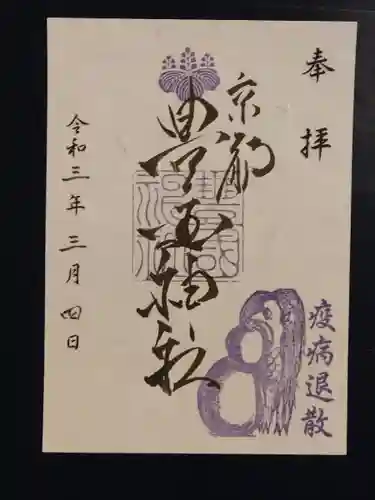 奉拝
疫病退散
京都
豊国神社
豊國
神社
令和三年三月四日